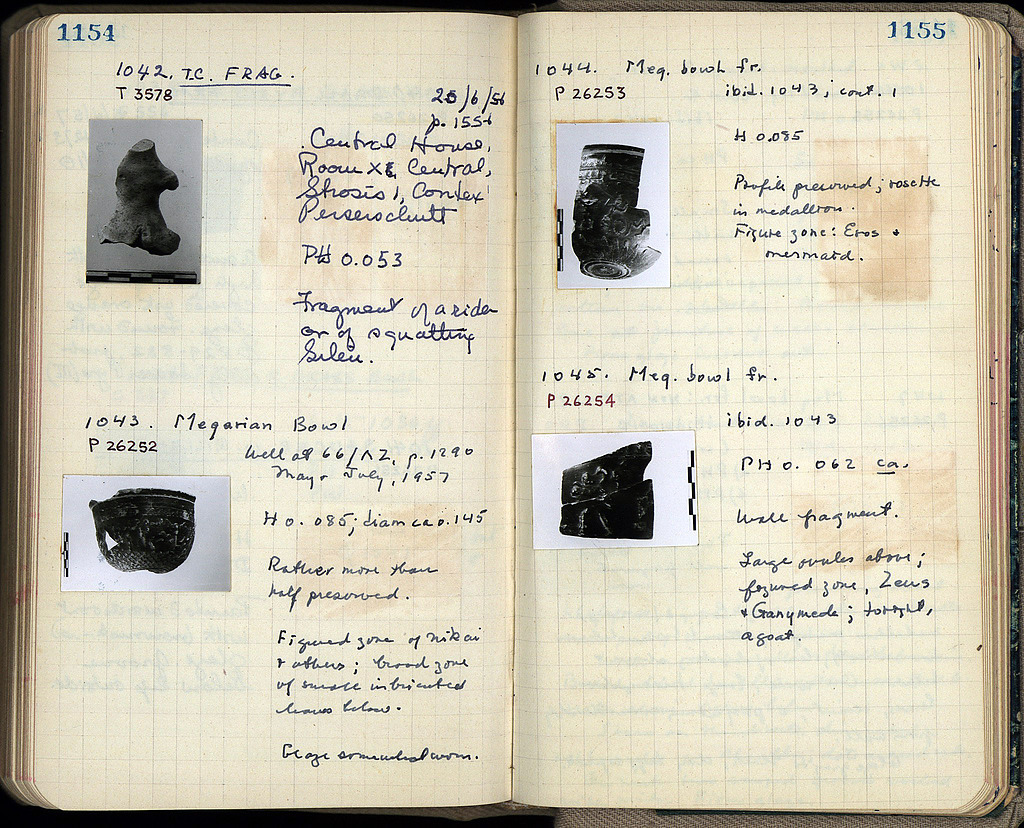 1154
1042. T.C. FRAG.
T 3578
/6/56
p. 1554
Central House,
Room Central,
Strosis 1, Contex
Perserschutt
PH 0.053
Fragment of a rider
or of squatting
Silen.
1043. Megarian Bowl
P 26252
Well at 66/ΛΖ, p. 1290
May + July, 1957
H 0.085; diam ca 0.145
Rather more than
half preserved.
Figured zone of Nikai
+ others; broad zone
of small imbricated
leaves below.
Glaze somewhat worn.
1155
1044. Meg. bowl fr.
P 26253
ibid. 1043; cont. 1
H 0.085
Profile preserved; rosette
in medallion.
Figure zone: Eros +
mermaid.
1045. Meg. bowl fr.
P 26254
ibid. 1043
PH 0.062 ca.
Wall fragment.
Large ovules above;
figured zone, Zeus
+ Ganymede; to right,
a goat.